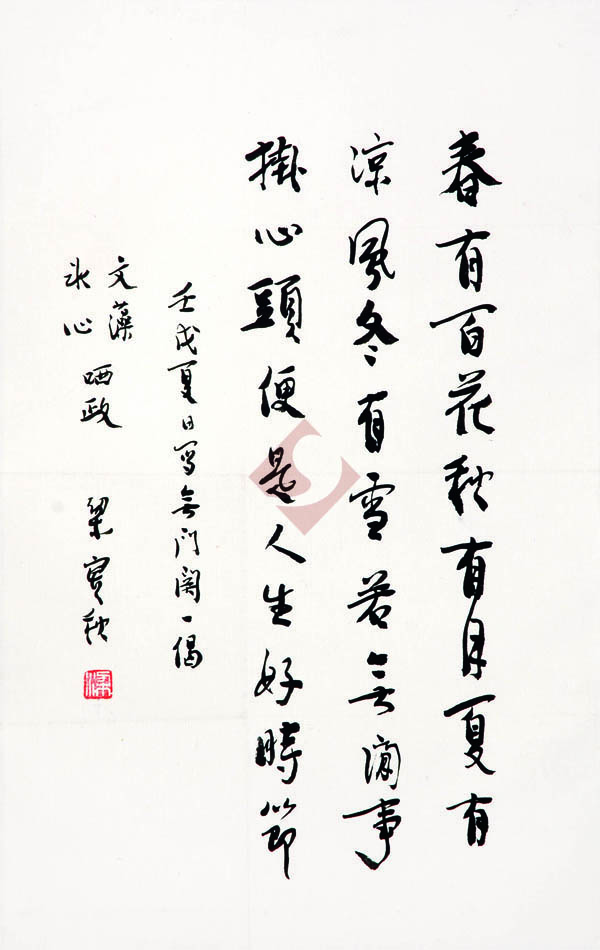 春有百花秋有月夏有
涼風冬有雪若無閒事
掛心頭便是人生好時節
壬戌夏日寫無門關一偈
文藻
冰心 哂政 梁實秋